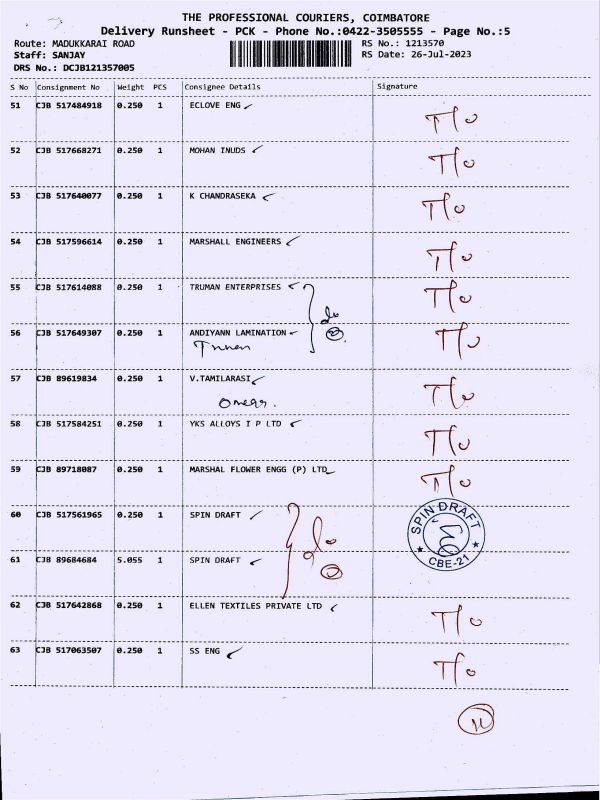 THE PROFESSIONAL COURIERS, COIMBATORE
Delivery Runsheet - PCK - Phone No.:0422-3505555 - Page No.:5
Route: MADUKKARAI ROAD RS No.: 1213570
Staff: SANJAY RS Date: 26-Jul-2023
DRS No.: DCJB121357005
S No Consignment No Weight PCS Consignee Details Signature
51 CJB 517484918 0.250 1 ECLOVE ENG T/o
52 CJB 517668271 0.250 1 MOHAN INUDS T/o
53 CJB 517640077 0.250 1 K CHANDRASEKA T/o
54 CJB 517596614 0.250 1 MARSHALL ENGINEERS T/o
55 CJB 517614088 0.250 1 TRUMAN ENTERPRISES T/o
do
2
56 CJB 517649307 0.250 1 ANDIYANN LAMINATION T/o
57 CJB 89619834 0.250 1 V.TAMILARASI T/o
Omega.
58 CJB 517584251 0.250 1 YKS ALLOYS I P LTD T/o
59 CJB 89718087 0.250 1 MARSHAL FLOWER ENGG (P) LTD T/o
60 CJB 517561965 0.250 1 SPIN DRAFT
SPIN DRAFT
CBE-21
do
61 CJB 89684684 5.055 1 SPIN DRAFT
62 CJB 517642868 0.250 1 ELLEN TEXTILES PRIVATE LTD T/o
63 CJB 517063507 0.250 1 SS ENG T/o
11